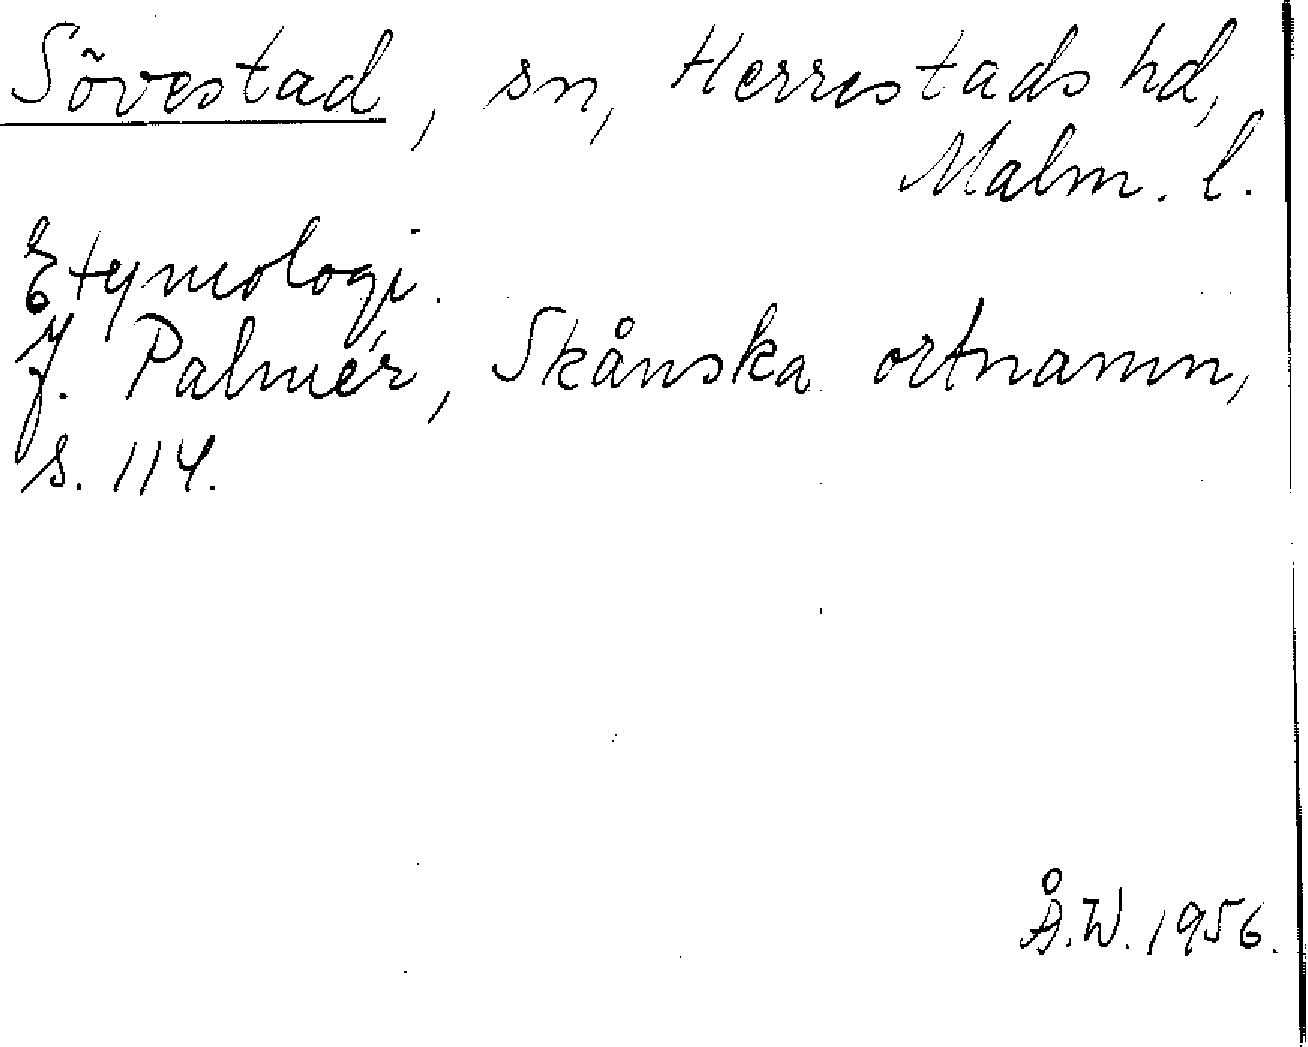 Sövestad, sn, Herrestads hd,
Malm. l.
Etymologi.
J. Palmér, Skånska ortnamn,
s. 114.
Å.W. 1956.